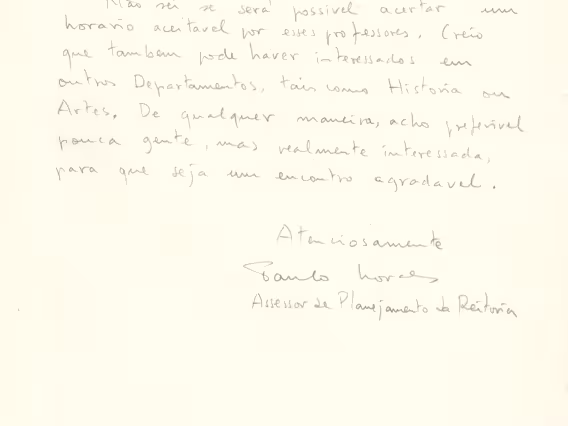 Não sei se será possivel acertar um
horario aceitavel por esses professores. Creio
que tambem pode haver interessados em
outros Departamentos, tais como Historia ou
Artes. De qualquer maneira, acho preferivel
pouca gente, mas realmente interessada,
para que seja um encontro agradavel.
Atenciosamente
Paulo
Assessor de Planejamento da Reitoria